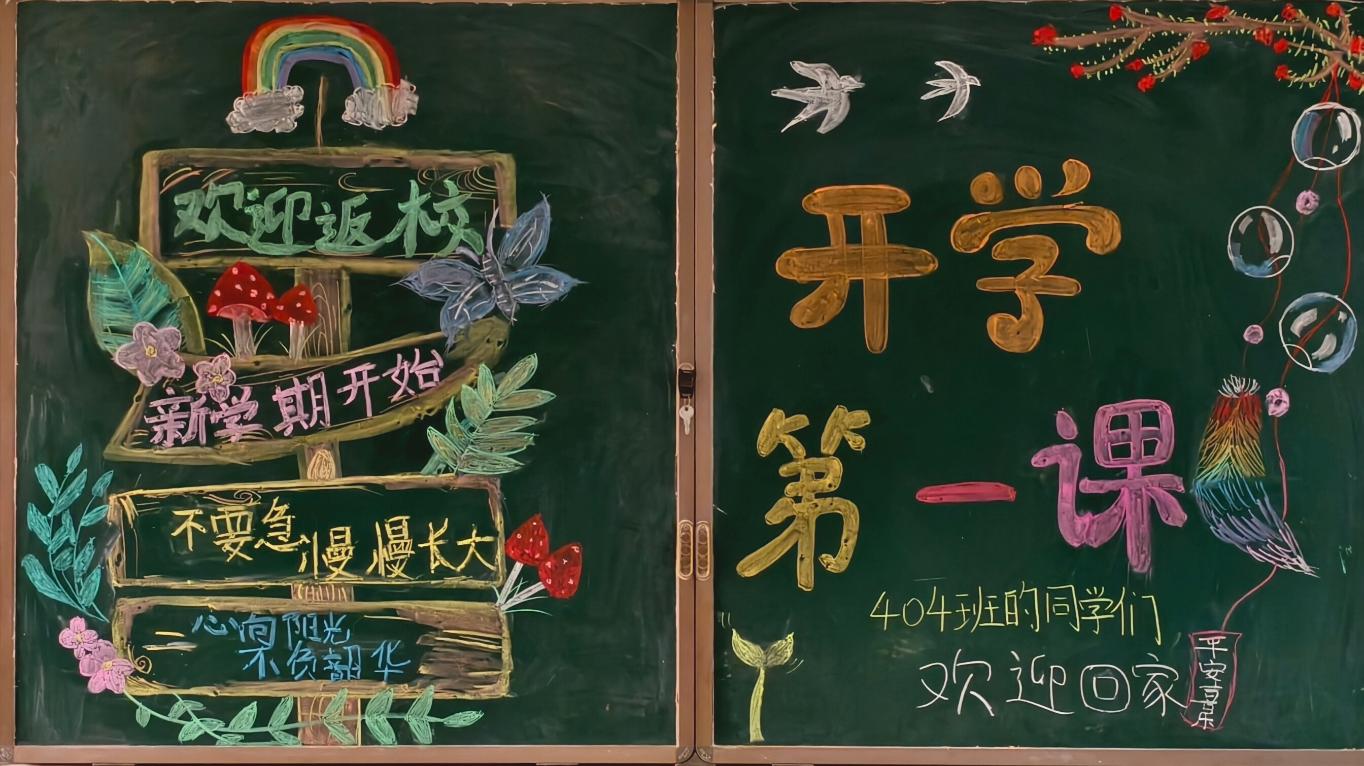 欢迎返校
新学期开始
不要急慢慢长大
一心向阳光
不负韶华
开学
第一课
404班的同学们
欢迎回家
平安喜乐